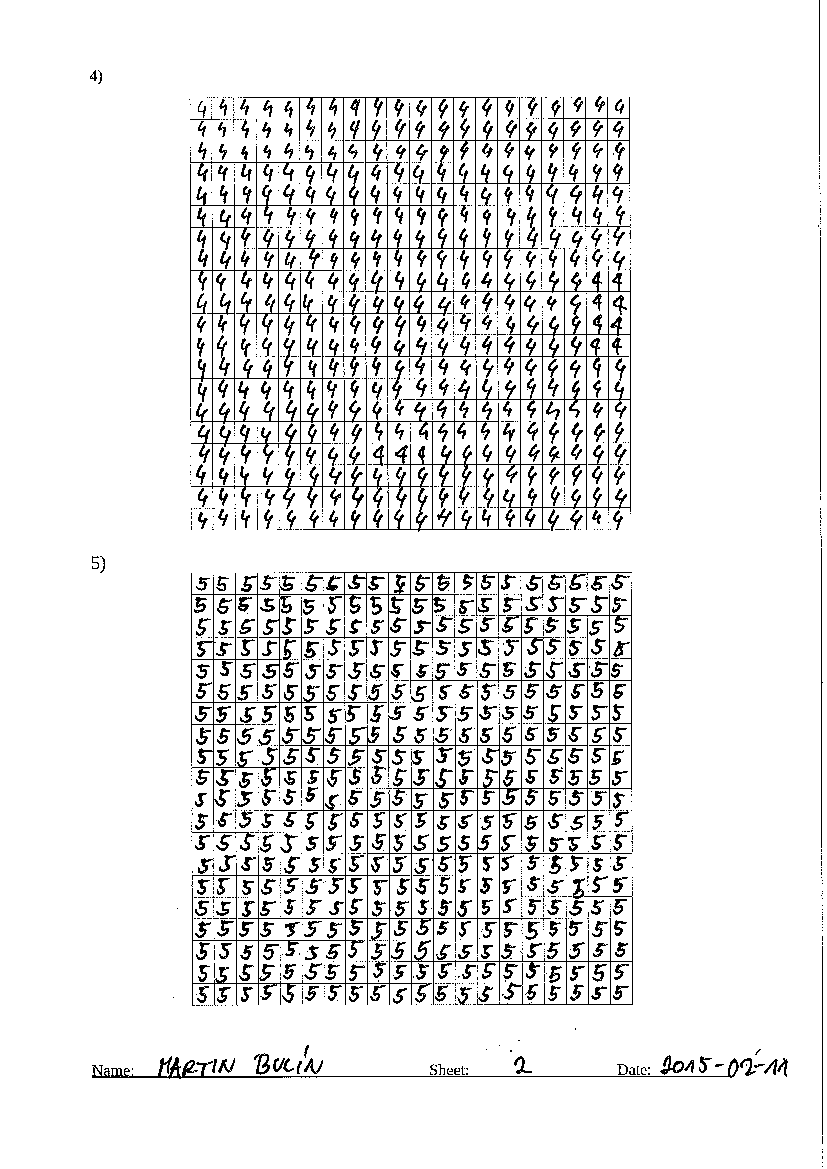 4)
4 4 4 4 4 4 4 4 4 4 4 4 4 4 4 4 4 4 4 4
4 4 4 4 4 4 4 4 4 4 4 4 4 4 4 4 4 4 4 4
4 4 4 4 4 4 4 4 4 4 4 4 4 4 4 4 4 4 4 4
4 4 4 4 4 4 4 4 4 4 4 4 4 4 4 4 4 4 4 4
4 4 4 4 4 4 4 4 4 4 4 4 4 4 4 4 4 4 4 4
4 4 4 4 4 4 4 4 4 4 4 4 4 4 4 4 4 4 4 4
4 4 4 4 4 4 4 4 4 4 4 4 4 4 4 4 4 4 4 4
4 4 4 4 4 4 4 4 4 4 4 4 4 4 4 4 4 4 4 4
4 4 4 4 4 4 4 4 4 4 4 4 4 4 4 4 4 4 4 4
4 4 4 4 4 4 4 4 4 4 4 4 4 4 4 4 4 4 4 4
4 4 4 4 4 4 4 4 4 4 4 4 4 4 4 4 4 4 4 4
4 4 4 4 4 4 4 4 4 4 4 4 4 4 4 4 4 4 4 4
4 4 4 4 4 4 4 4 4 4 4 4 4 4 4 4 4 4 4 4
4 4 4 4 4 4 4 4 4 4 4 4 4 4 4 4 4 4 4 4
4 4 4 4 4 4 4 4 4 4 4 4 4 4 4 4 4 4 4 4
4 4 4 4 4 4 4 4 4 4 4 4 4 4 4 4 4 4 4 4
4 4 4 4 4 4 4 4 4 4 4 4 4 4 4 4 4 4 4 4
4 4 4 4 4 4 4 4 4 4 4 4 4 4 4 4 4 4 4 4
4 4 4 4 4 4 4 4 4 4 4 4 4 4 4 4 4 4 4 4
4 4 4 4 4 4 4 4 4 4 4 4 4 4 4 4 4 4 4 4
5)
5 5 5 5 5 5 5 5 5 5 5 5 5 5 5 5 5 5 5 5
5 5 5 5 5 5 5 5 5 5 5 5 5 5 5 5 5 5 5 5
5 5 5 5 5 5 5 5 5 5 5 5 5 5 5 5 5 5 5 5
5 5 5 5 5 5 5 5 5 5 5 5 5 5 5 5 5 5 5 5
5 5 5 5 5 5 5 5 5 5 5 5 5 5 5 5 5 5 5 5
5 5 5 5 5 5 5 5 5 5 5 5 5 5 5 5 5 5 5 5
5 5 5 5 5 5 5 5 5 5 5 5 5 5 5 5 5 5 5 5
5 5 5 5 5 5 5 5 5 5 5 5 5 5 5 5 5 5 5 5
5 5 5 5 5 5 5 5 5 5 5 5 5 5 5 5 5 5 5 5
5 5 5 5 5 5 5 5 5 5 5 5 5 5 5 5 5 5 5 5
5 5 5 5 5 5 5 5 5 5 5 5 5 5 5 5 5 5 5 5
5 5 5 5 5 5 5 5 5 5 5 5 5 5 5 5 5 5 5 5
5 5 5 5 5 5 5 5 5 5 5 5 5 5 5 5 5 5 5 5
5 5 5 5 5 5 5 5 5 5 5 5 5 5 5 5 5 5 5 5
5 5 5 5 5 5 5 5 5 5 5 5 5 5 5 5 5 5 5 5
5 5 5 5 5 5 5 5 5 5 5 5 5 5 5 5 5 5 5 5
5 5 5 5 5 5 5 5 5 5 5 5 5 5 5 5 5 5 5 5
5 5 5 5 5 5 5 5 5 5 5 5 5 5 5 5 5 5 5 5
5 5 5 5 5 5 5 5 5 5 5 5 5 5 5 5 5 5 5 5
5 5 5 5 5 5 5 5 5 5 5 5 5 5 5 5 5 5 5 5
Name: MARTIN BULÍN Sheet: 2 Date: 2015-02-11